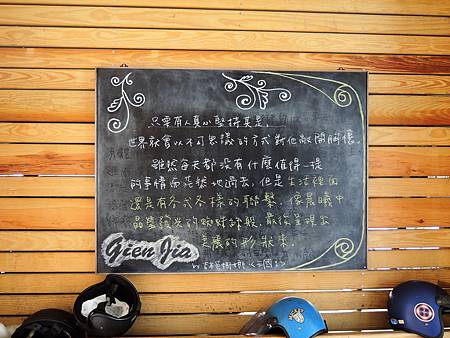 只要有人真心堅持其是
世界就會以不可思議的方式對他敞開胸懷。
雖然每天都沒有什麼值得一提
的事情而茫然地過去，但是生活裡面
還是有各式各樣的聯繫，像晨曦中
晶瑩發光的蜘蛛絲般，最後呈現出
美麗的形狀來。
Gien Jia
by